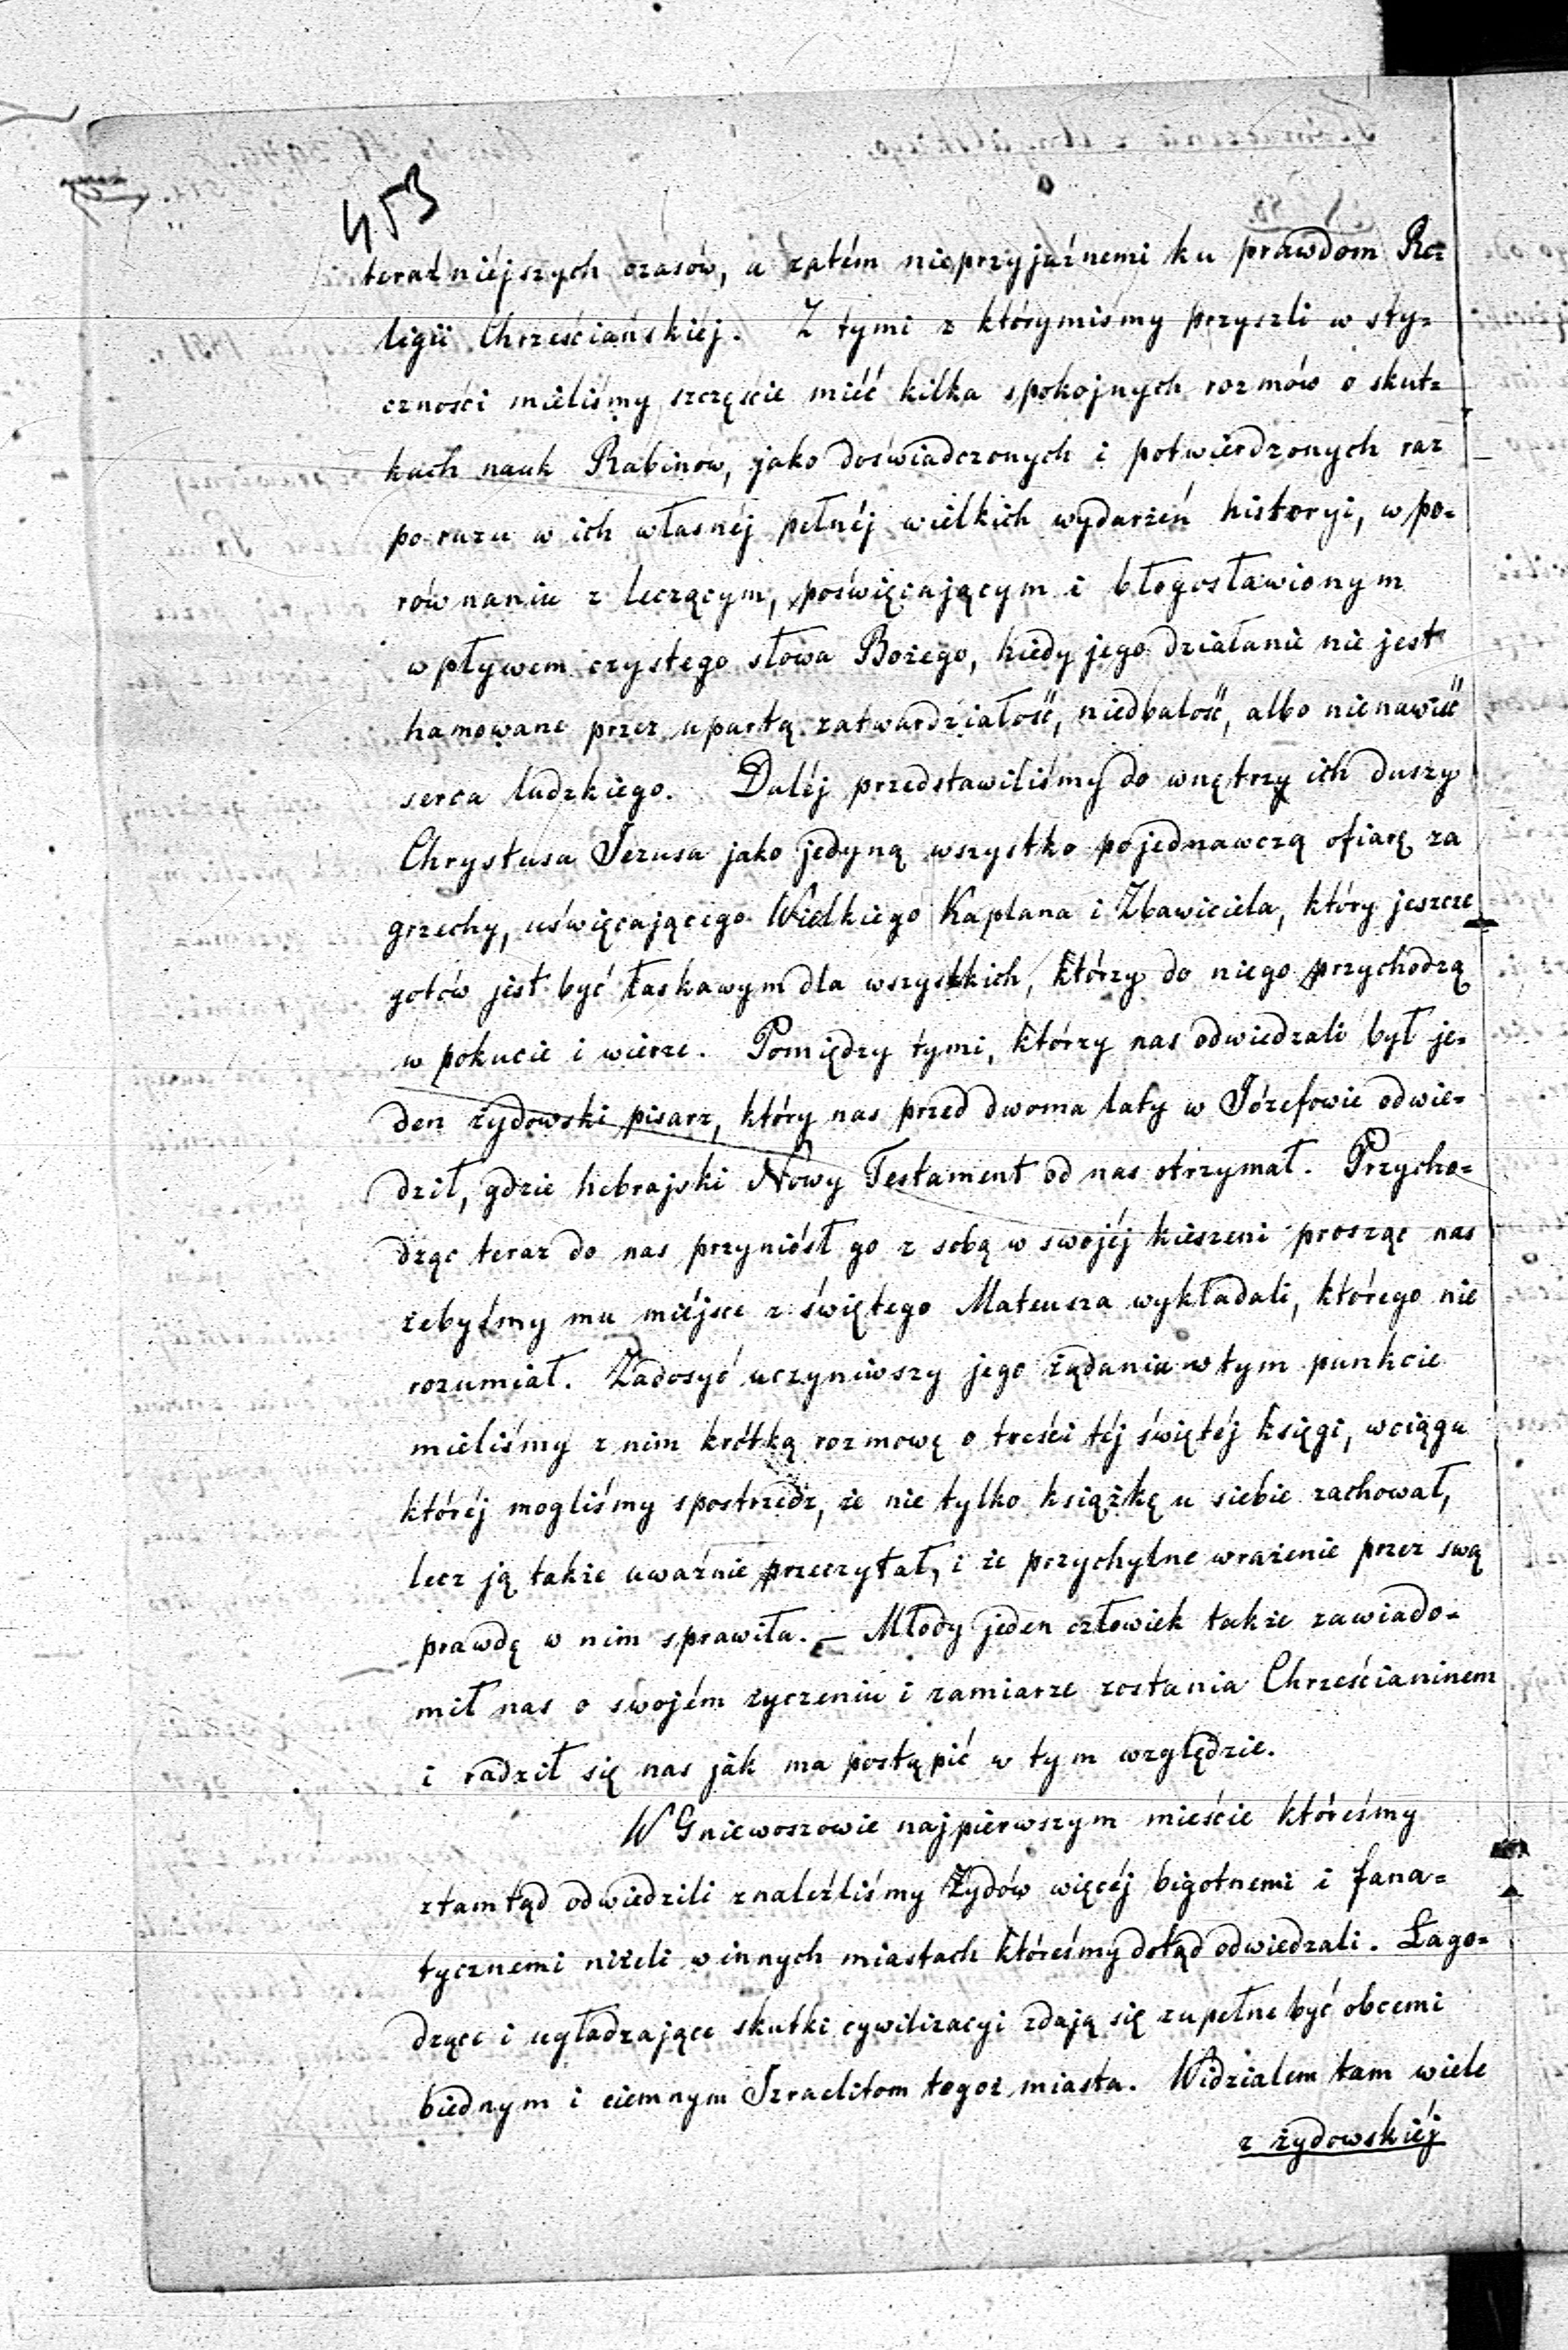 453
teraźniéjszych czasów, a zatém nieprzyjaźnemi ku prawdom Re=
ligii Chrześciańskiéj. Z tymi z którymiśmy przyszli w sty=
czności mieliśmy szczęście miéć kilka spokojnych rozmów o skut=
kach nauk Rabinów, jako doświadczonych i potwierdzonych raz
po razu w ich własnéj pełnéj wielkich wydarzeń historyi, w po=
równaniu z leczącym, poświęcającym i błogosławionym
wpływem czystego słowa Bożego, kiedy jego działanie nie jest
hamowane przez upartą zatwardziałość, niedbałość, albo nienawiść
serca ludzkiego. Daléj przedstawiliśmy do wnętrzy ich duszy
Chrystusa Jezusa jako jedyną wszystko pojednawczą ofiarę za
grzechy, uświęcającego Wielkiego Kapłana i Zbawiciela, który jeszcze
gotów jest być łaskawym dla wszystkich, którzy do niego przychodzą
w pokucie i wierze. Pomiędzy tymi, którzy nas odwiedzali był je=
den żydowski pisarz, który nas przed dwoma laty w Józefowie odwie=
dził, gdzie hebrajski Nowy Testament od nas otrzymał. Przycho=
dząc teraz do nas przyniósł go z sobą w swojéj kieszeni prosząc nas
żebyśmy mu miéjsce z świętego Mateusza wykładali, którego nie
rozumiał. Zadosyć uczyniwszy jego żądaniu w tym punkcie
mieliśmy z nim krótką rozmowę o treści téj świętéj księgi, wciągu
któréj mogliśmy spostrzedz, że nie tylko książkę u siebie zachował,
lecz ją także uważnie przeczytał, i że przychylne wrażenie przez swą
prawdę w nim sprawiła. — Młody jeden człowiek także zawiado=
mił nas o swojém życzeniu i zamiarze zostania Chrześcianinem
i radził się nas jak ma postąpić w tym względzie.
W Gniewoszowie najpierwszym mieście któreśmy
ztamtąd odwiedzili znaleźliśmy Żydów więcéj bigotnemi i fana=
tycznemi niżeli w innych miastach któreśmy dotąd odwiedzali. Łago=
dzące i ugładzające skutki cywilizacyi zdają się zupełne być obcemi
biednym i ciemnym Izraelitom tegoż miasta. Widzialem tam wiele
z żydowskiéj